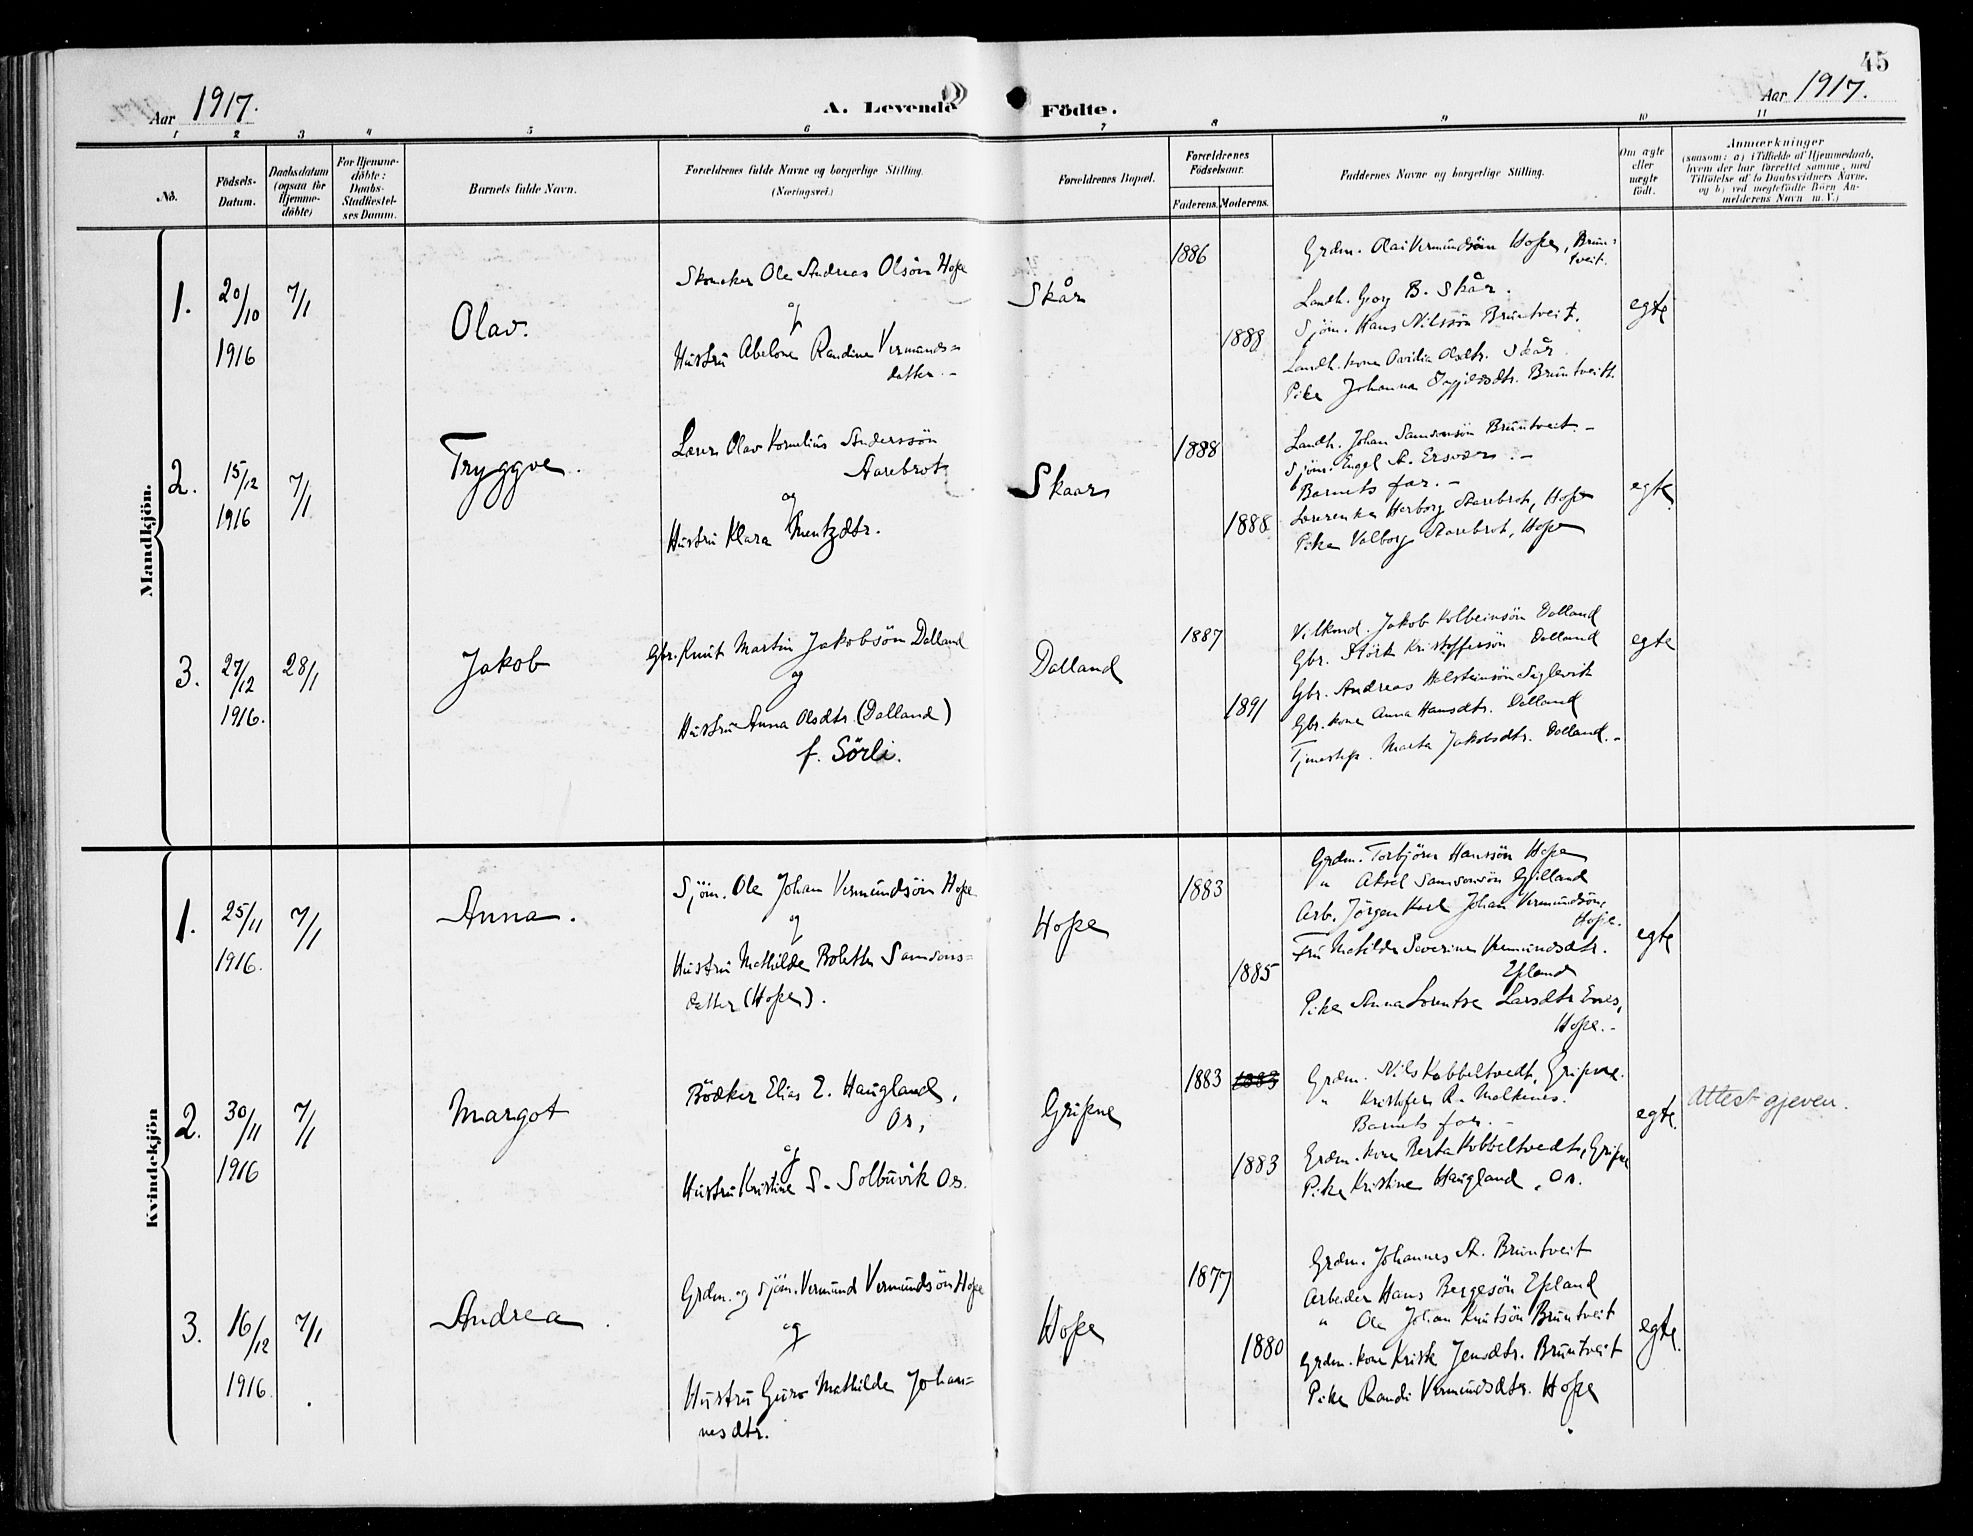 45
Aar 1917.
A. Levende Födte.
Aar 1917.
1 2 3 4 5 6 7 8 9 10 11
No.
Födsels-
Datum.
Daabsdatum
(ogsaa for
Hjemme-
döbte)
For Hjemme-
döbte:
Daabs-
Stadfæstel-
ses Datum.
Barnets fulde Navn.
Forældrenes fulde Navne og borgerlige Stilling.
(Næringsvei.)
Forældrenes Bopæl.
Forældrenes
Födselsaar.
Faderens.
Moderens.
Faddernes Navne og borgerlige Stilling.
Om ægte
eller
uægte
född.
Anmærkninger
(saasom: a) i Tilfælde af Hjemmedaab,
hvem der har forrettet samme, med
Tilföielse af to Daabsvidners Navne,
og b) ved uægtefödte Börn An-
melderens Navn m. V.)
Mandkjön.
1.
20/10
1916
7/1
Olav.
Skomaker Ole Andreas Olsön Hope
og
Hustru Abelone Randine Vermunds=
datter.-
Skår
1886
1888
Grdm. Olai Vermundsön Hope, Brun=
tveit.
Landh. Georg B. Skår.
Sjöm. Hans Nilssön Bruntveit.
Landh. kone Ovidia Olsdtr. Skår
Pike Johanna Bruntveit.
egte
2.
15/12
1916
7/1
Tryggve.
Lærer Olav Kornelius Anderssön
Aarebrot
og
Hustru Klara Mentzdtr.
Skaar
1888
1888
Landh. Johan Samsonsön Bruntveit.-
Sjöm. Engel A. Ersvær.-
Barnets far.-
Lærerenke Herborg Aarebrot, Hope
Pike Valborg Aarebrot, Hope
egte
3.
27/12
1916.
28/1
Jakob
Gbr. Knut Martin Jakobsön Dalland
og
Hustru Anna Olsdtr. (Dalland)
f. Sörli.
Dalland
1887
1891
Vilkmd. Jakob Kolbeinsön Dalland
Gbr. Störk Kristoffersön Dalland
Gbr. Andreas Helsteinsön Siglevik
Gbr. kone Anna Hansdtr. Dalland
Tjenestep. Marta Jakobsdtr. Dalland.-
egte
Kvindekjön
1.
25/11
1916.
7/1
Anna.
Sjöm. Ole Johan Vermundsön Hope
og
Hustru Mathilde Bolette Samsons=
datter (Hope).
Hope
1883
1885
Grdm. Torbjörn Hanssön Hope
" Aksel Samsonsön Gjilland
Arb. Jörgen Karl Johan Vermundsön,
Hope.
Fru Matilde Severine Vermundsdtr.
Epland
Pike Anna Lorentse Larsdtr Enes,
Hope.-
egte
2.
30/11
1916
7/1
Margot
Bödker Elias E. Haugland,
Os,
og
Hustru Kristine S. Solbuvik Os.
Gripne
1883
1883
1883
Grdm. Nils Kobbeltvedt, Gripne.
" Kristofer R. Malkenes.
Barnets far.-
Grdm. kone Berta Kobbeltvedt, Gripne
Pike Kristine Haugland, Os.
egte.
Attest gjeven.
3.
16/12
1916
7/1
Andrea.
Grdm. og Sjöm. Vermund Vermundsön Hope
og
Hustru Guro Mathilde Johan=
nesdtr.
Hope
1877
1880
Grdm. Johannes A. Bruntveit
Arbeider Hans Bergesön Epland
" Ole Johan Knutsön Bruntveit
Grdm. kone Kristi Jensdtr. Bruntveit
Pike Randi Vermundsdtr. Hope
egte.